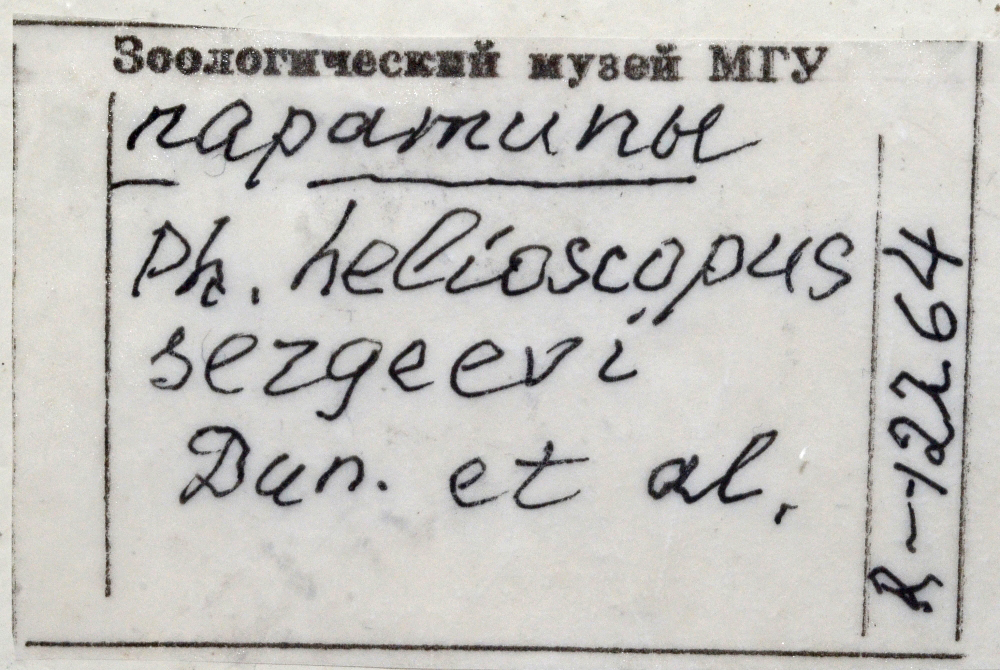 Зоологический музей МГУ
паратипы
Ph. helioscopus
sergeevi
Dun. et al,
R-12264